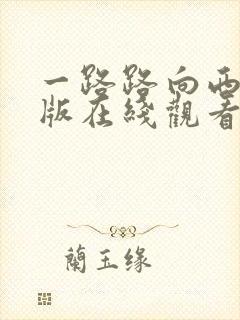 一路路向西
版在綫觀看
蘭玉缘